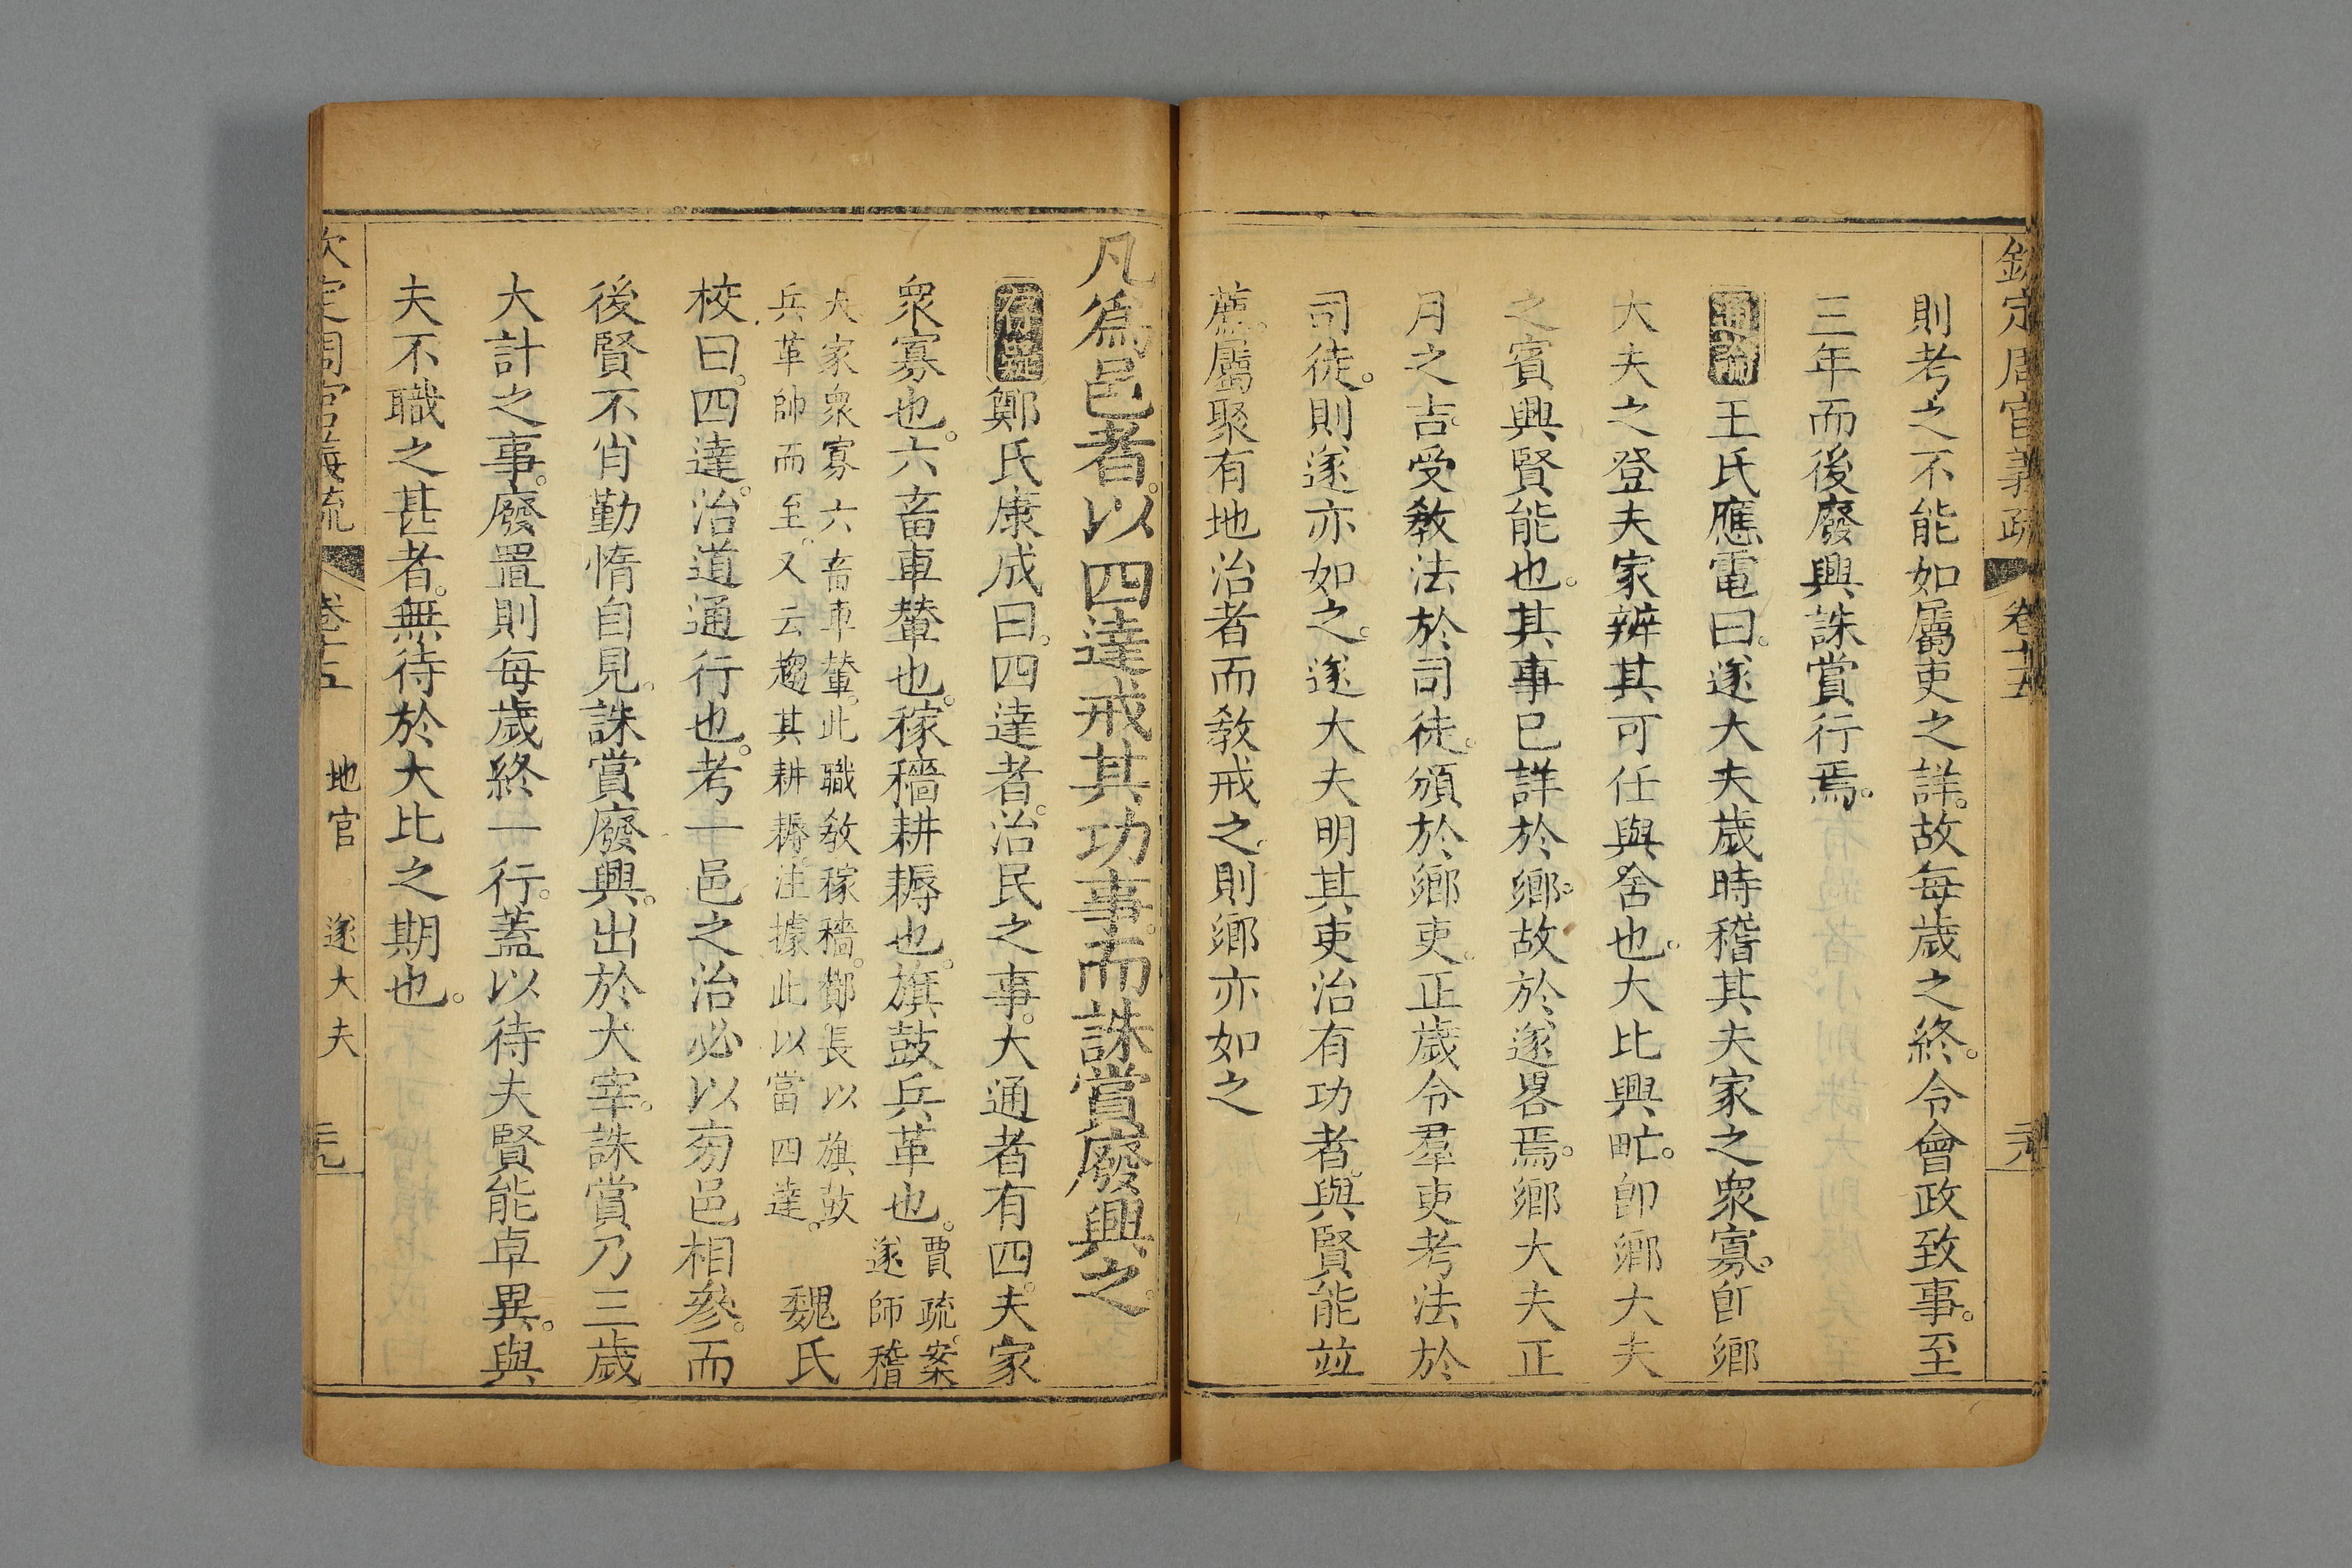 欽定周官義疏 卷十五 二九
則考之不能如屬吏之詳。故每歲之終。令會政致事。至
三年而後廢興誅賞行焉。
通論王氏應電曰。遂大夫歲時稽其夫家之衆寡。卽鄉
大夫之登夫家辨其可任與舍也。大比興甿。卽鄉大夫
之賓興賢能也。其事已詳於鄉。故於遂畧焉。鄉大夫正
月之吉。受教法於司徒。頒於鄉吏。正歲令羣吏考法於
司徒。則遂亦如之。遂大夫明其吏治有功者。與賢能竝
薦。屬聚有地治者而教戒之。則鄉亦如之
凡爲邑者。以四達戒其功事。而誅賞廢興之。
存疑鄭氏康成曰。四達者。治民之事。大通者有四。夫家
衆寡也。六畜車輦也。稼穡耕耨也。旗鼓兵革也。賈疏。案遂師稽
夫家衆寡六畜車輦。此職教稼穡。酇長以旗鼓
兵革帥而至。又云趨其耕耨。注據此以當四達。 魏氏
校曰。四達。治道通行也。考一邑之治必以旁邑相參。而
後賢不肖勤惰自見。誅賞廢興。出於大宰。誅賞乃三歲
大計之事。廢置則每歲終一行。蓋以待夫賢能卓異。與
夫不職之甚者。無待於大比之期也。
欽定周官義疏 卷十五 地官 遂大夫 二九